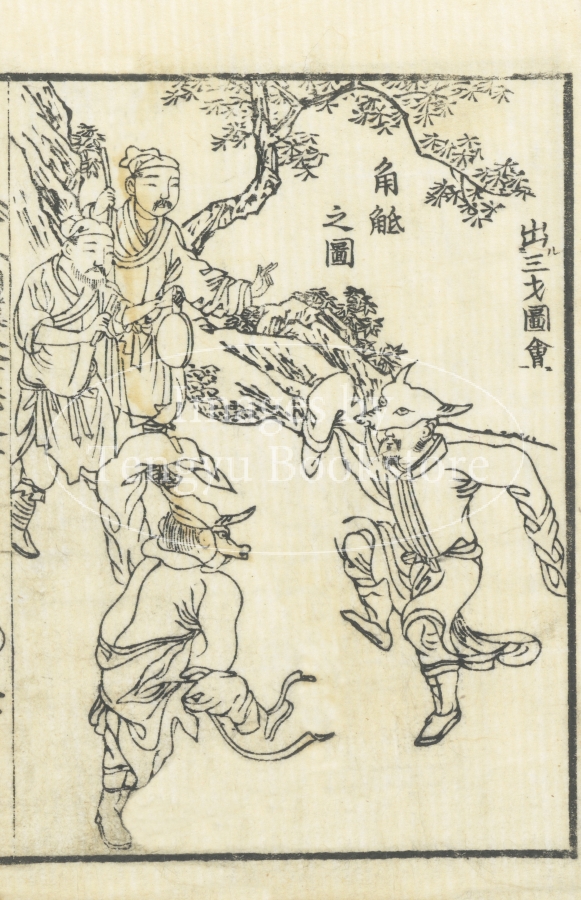 出ル三才圖會
角觝
之圖
Images by
Tengyu Bookstore